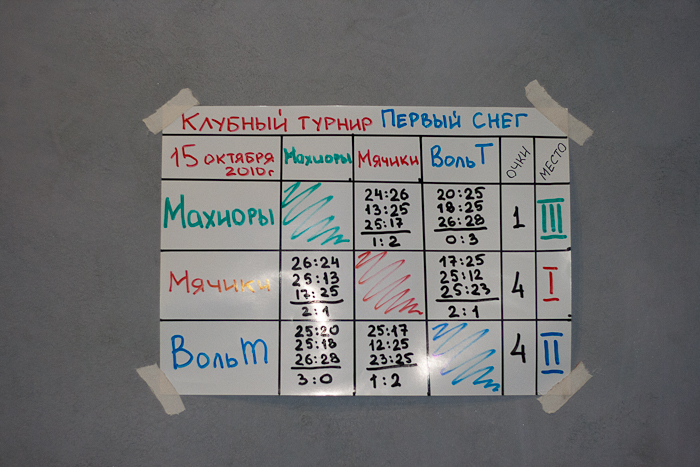 Клубный турнир Первый снег
15 октября 2010г Махиоры Мячики ВольТ очки место
24:26 20:25
13:25 18:25
Махиоры 25:17 26:28 1 III
1:2 0:3
26:24 17:25
25:13 25:12
Мячики 17:25 25:23 4 I
2:1 2:1
25:20 25:17
25:18 12:25
ВольТ 26:28 23:25 4 II
3:0 1:2